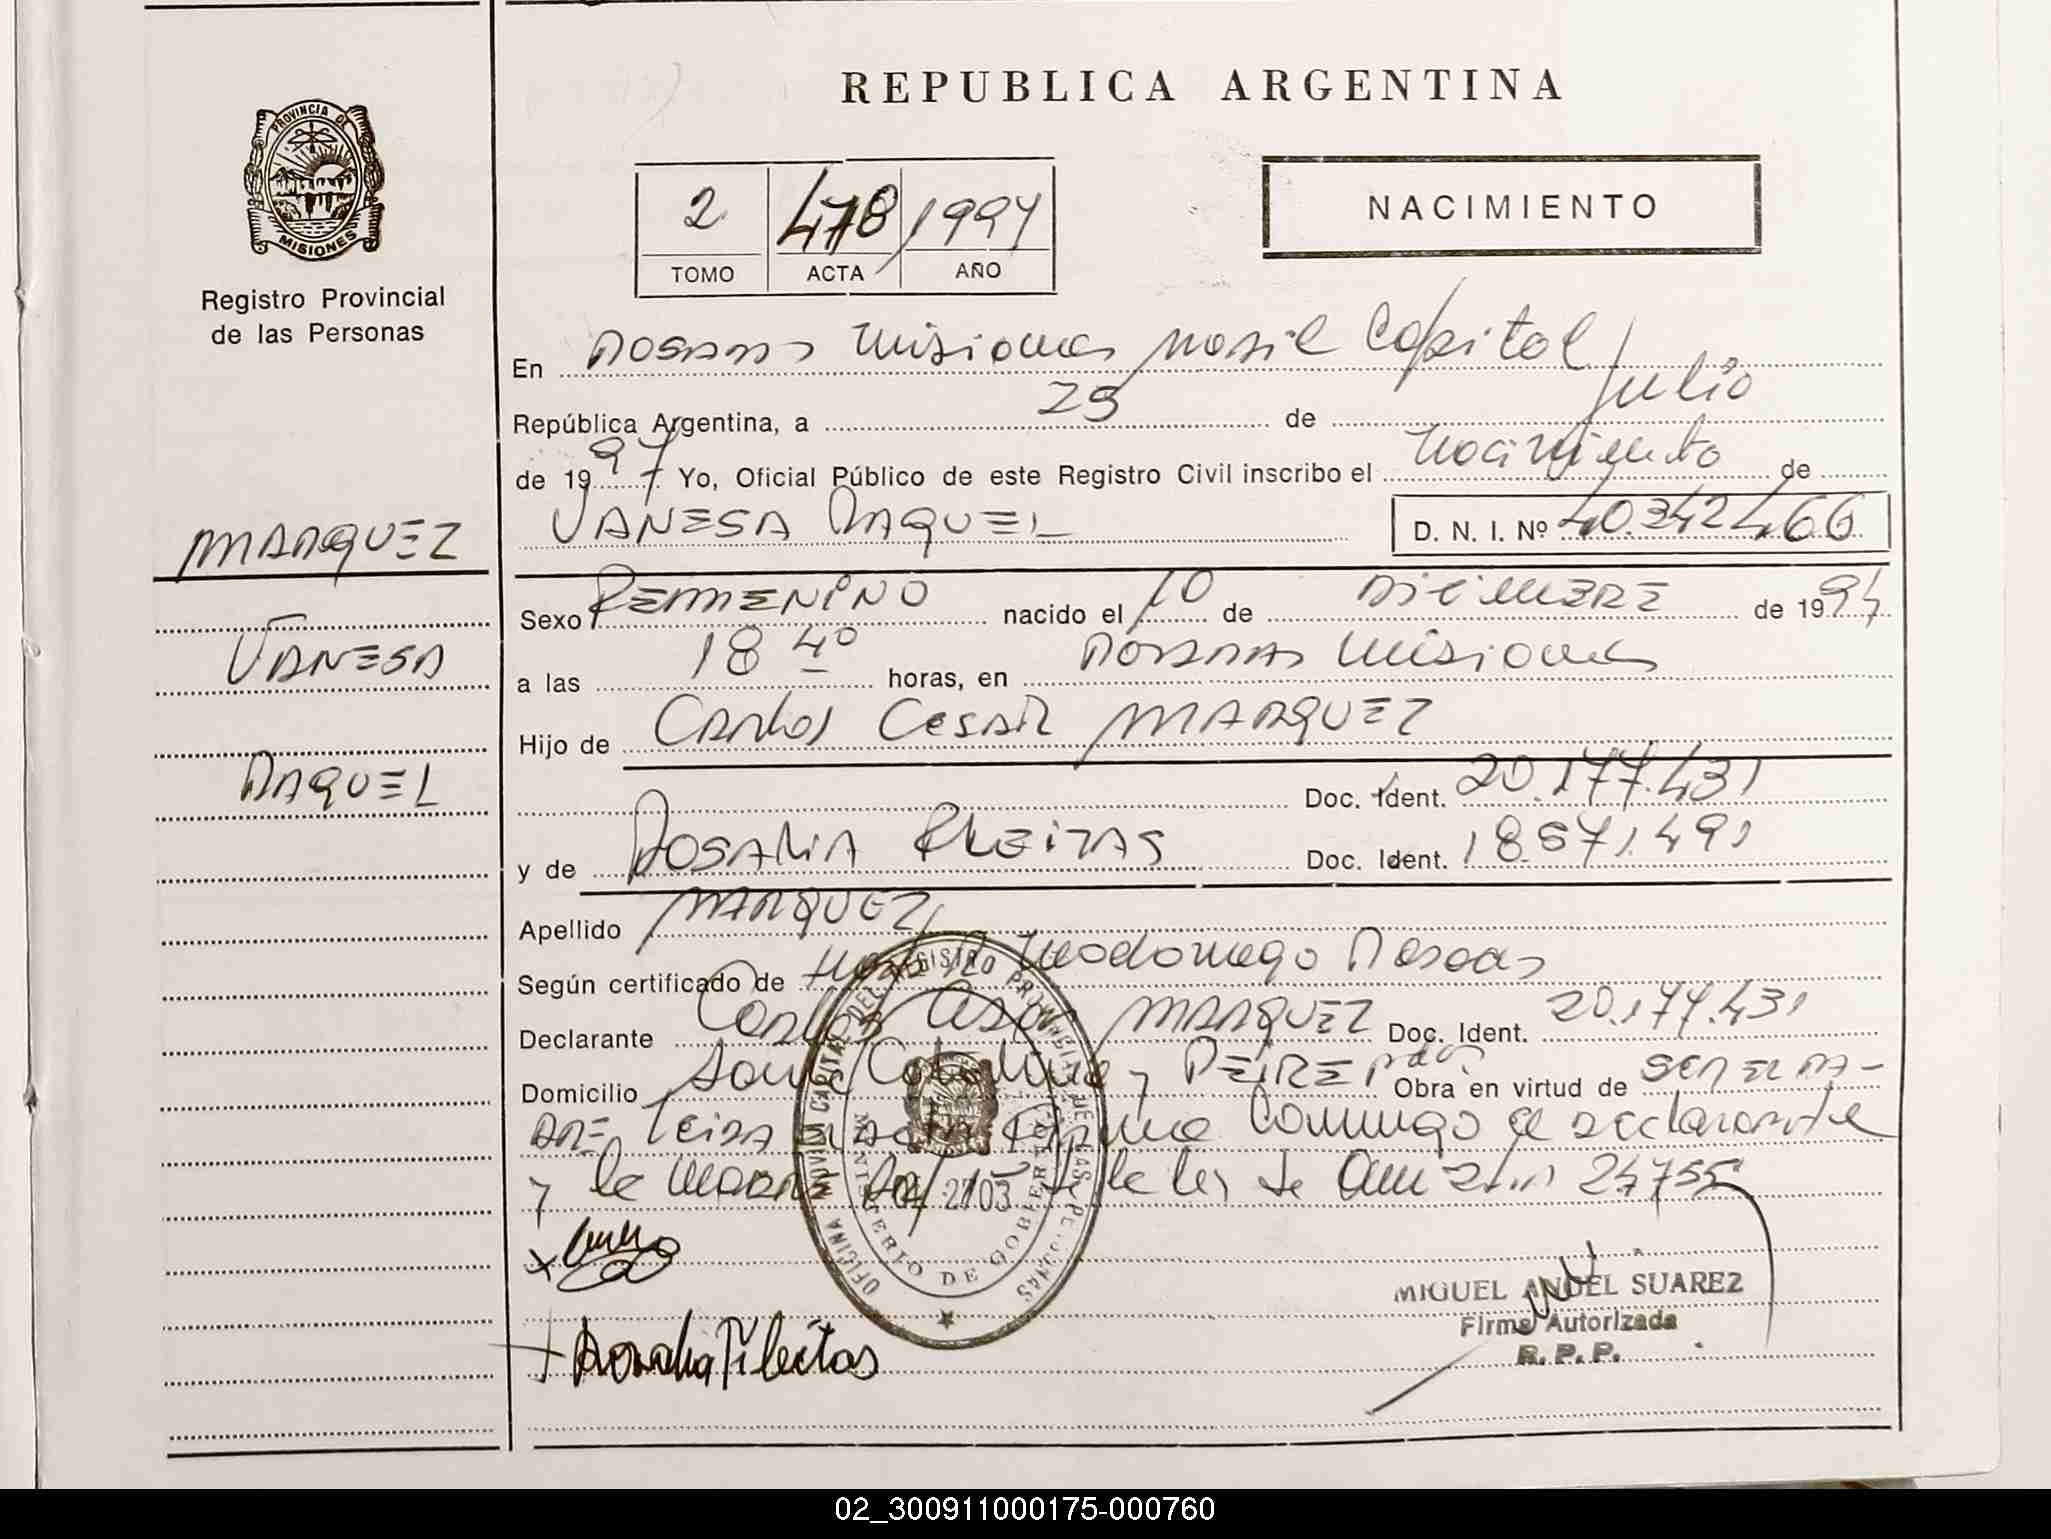 REPUBLICA ARGENTINA
PROVINCIA DE
MISIONES
Registro Provincial
de las Personas
2 478 1997
TOMO ACTA AÑO
NACIMIENTO
En Posadas Misiones Capital
República Argentina, a 25 de Julio
de 1997 Yo, Oficial Público de este Registro Civil inscribo el nacimiento de
VANESA RAQUEL D. N. I. Nº 40.342.466
MARQUEZ
VANESA
RAQUEL
Sexo FEMENINO nacido el 10 de DICIEMBRE de 19
a las 18 40 horas, en Posadas Misiones
Hijo de Carlos Cesar MARQUEZ
Doc. Ident. 20.177.431
y de ROSALIA FLEITAS Doc. Ident. 18.571.491
Apellido MARQUEZ
Según certificado de Posadas
Declarante Carlos Cesar MARQUEZ Doc. Ident. 20.177.431
Domicilio y Obra en virtud de
conmigo el declarante
y la ley de 24755
OFICINA MOVIL CAPITAL DEL REGISTRO PROVINCIAL DE LAS PERSONAS
MINISTERIO DE GOBIERNO
Rosalia Fleitas
MIGUEL ANGEL SUAREZ
Firma Autorizada
R. P. P.
02_300911000175-000760